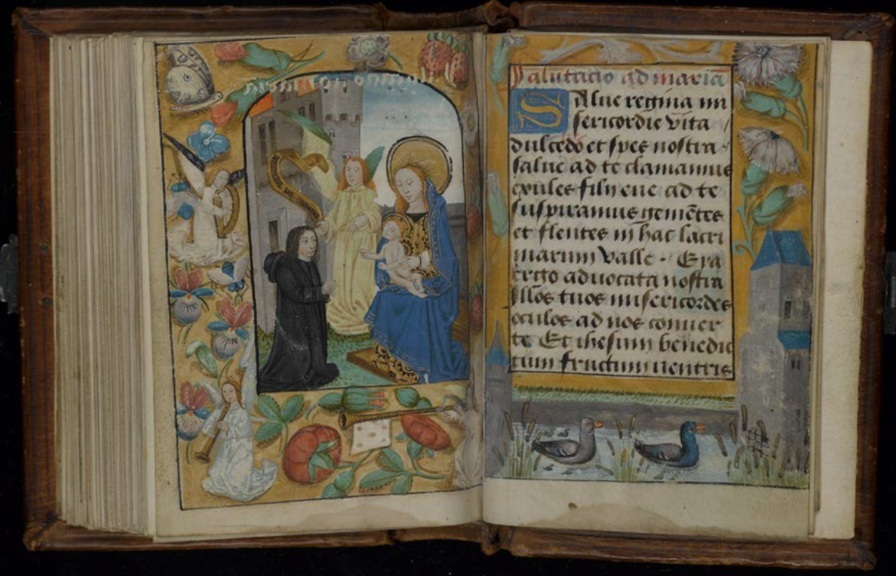 Salutacio ad maria
Salue regina mi
sericordie vita
dulcedo et spes nostra
salue ad te clamamus
exules filij eue ad te
suspiramus gemētes
et flentes in hac lacri
marum valle Eya
ergo aduocata nostra
Illos tuos misericordes
oculos ad nos conuer
te Et ihesum benedic
tum fructum uentris